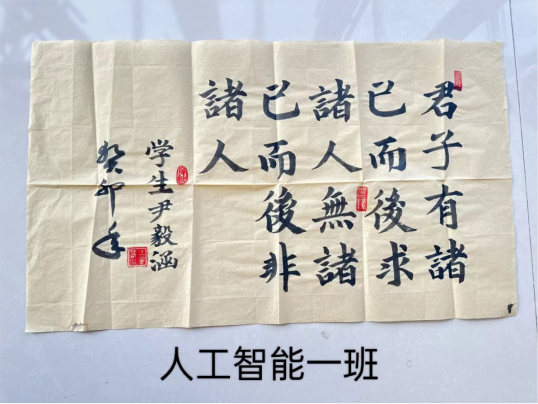 君子有諸
己而後求
諸人無諸
己而後非
諸人
学生尹毅涵
癸卯年
人工智能一班